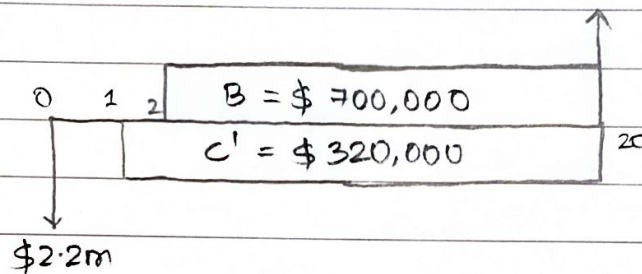 0 1 2 B = $ 700,000
C' = $ 320,000
$2.2m